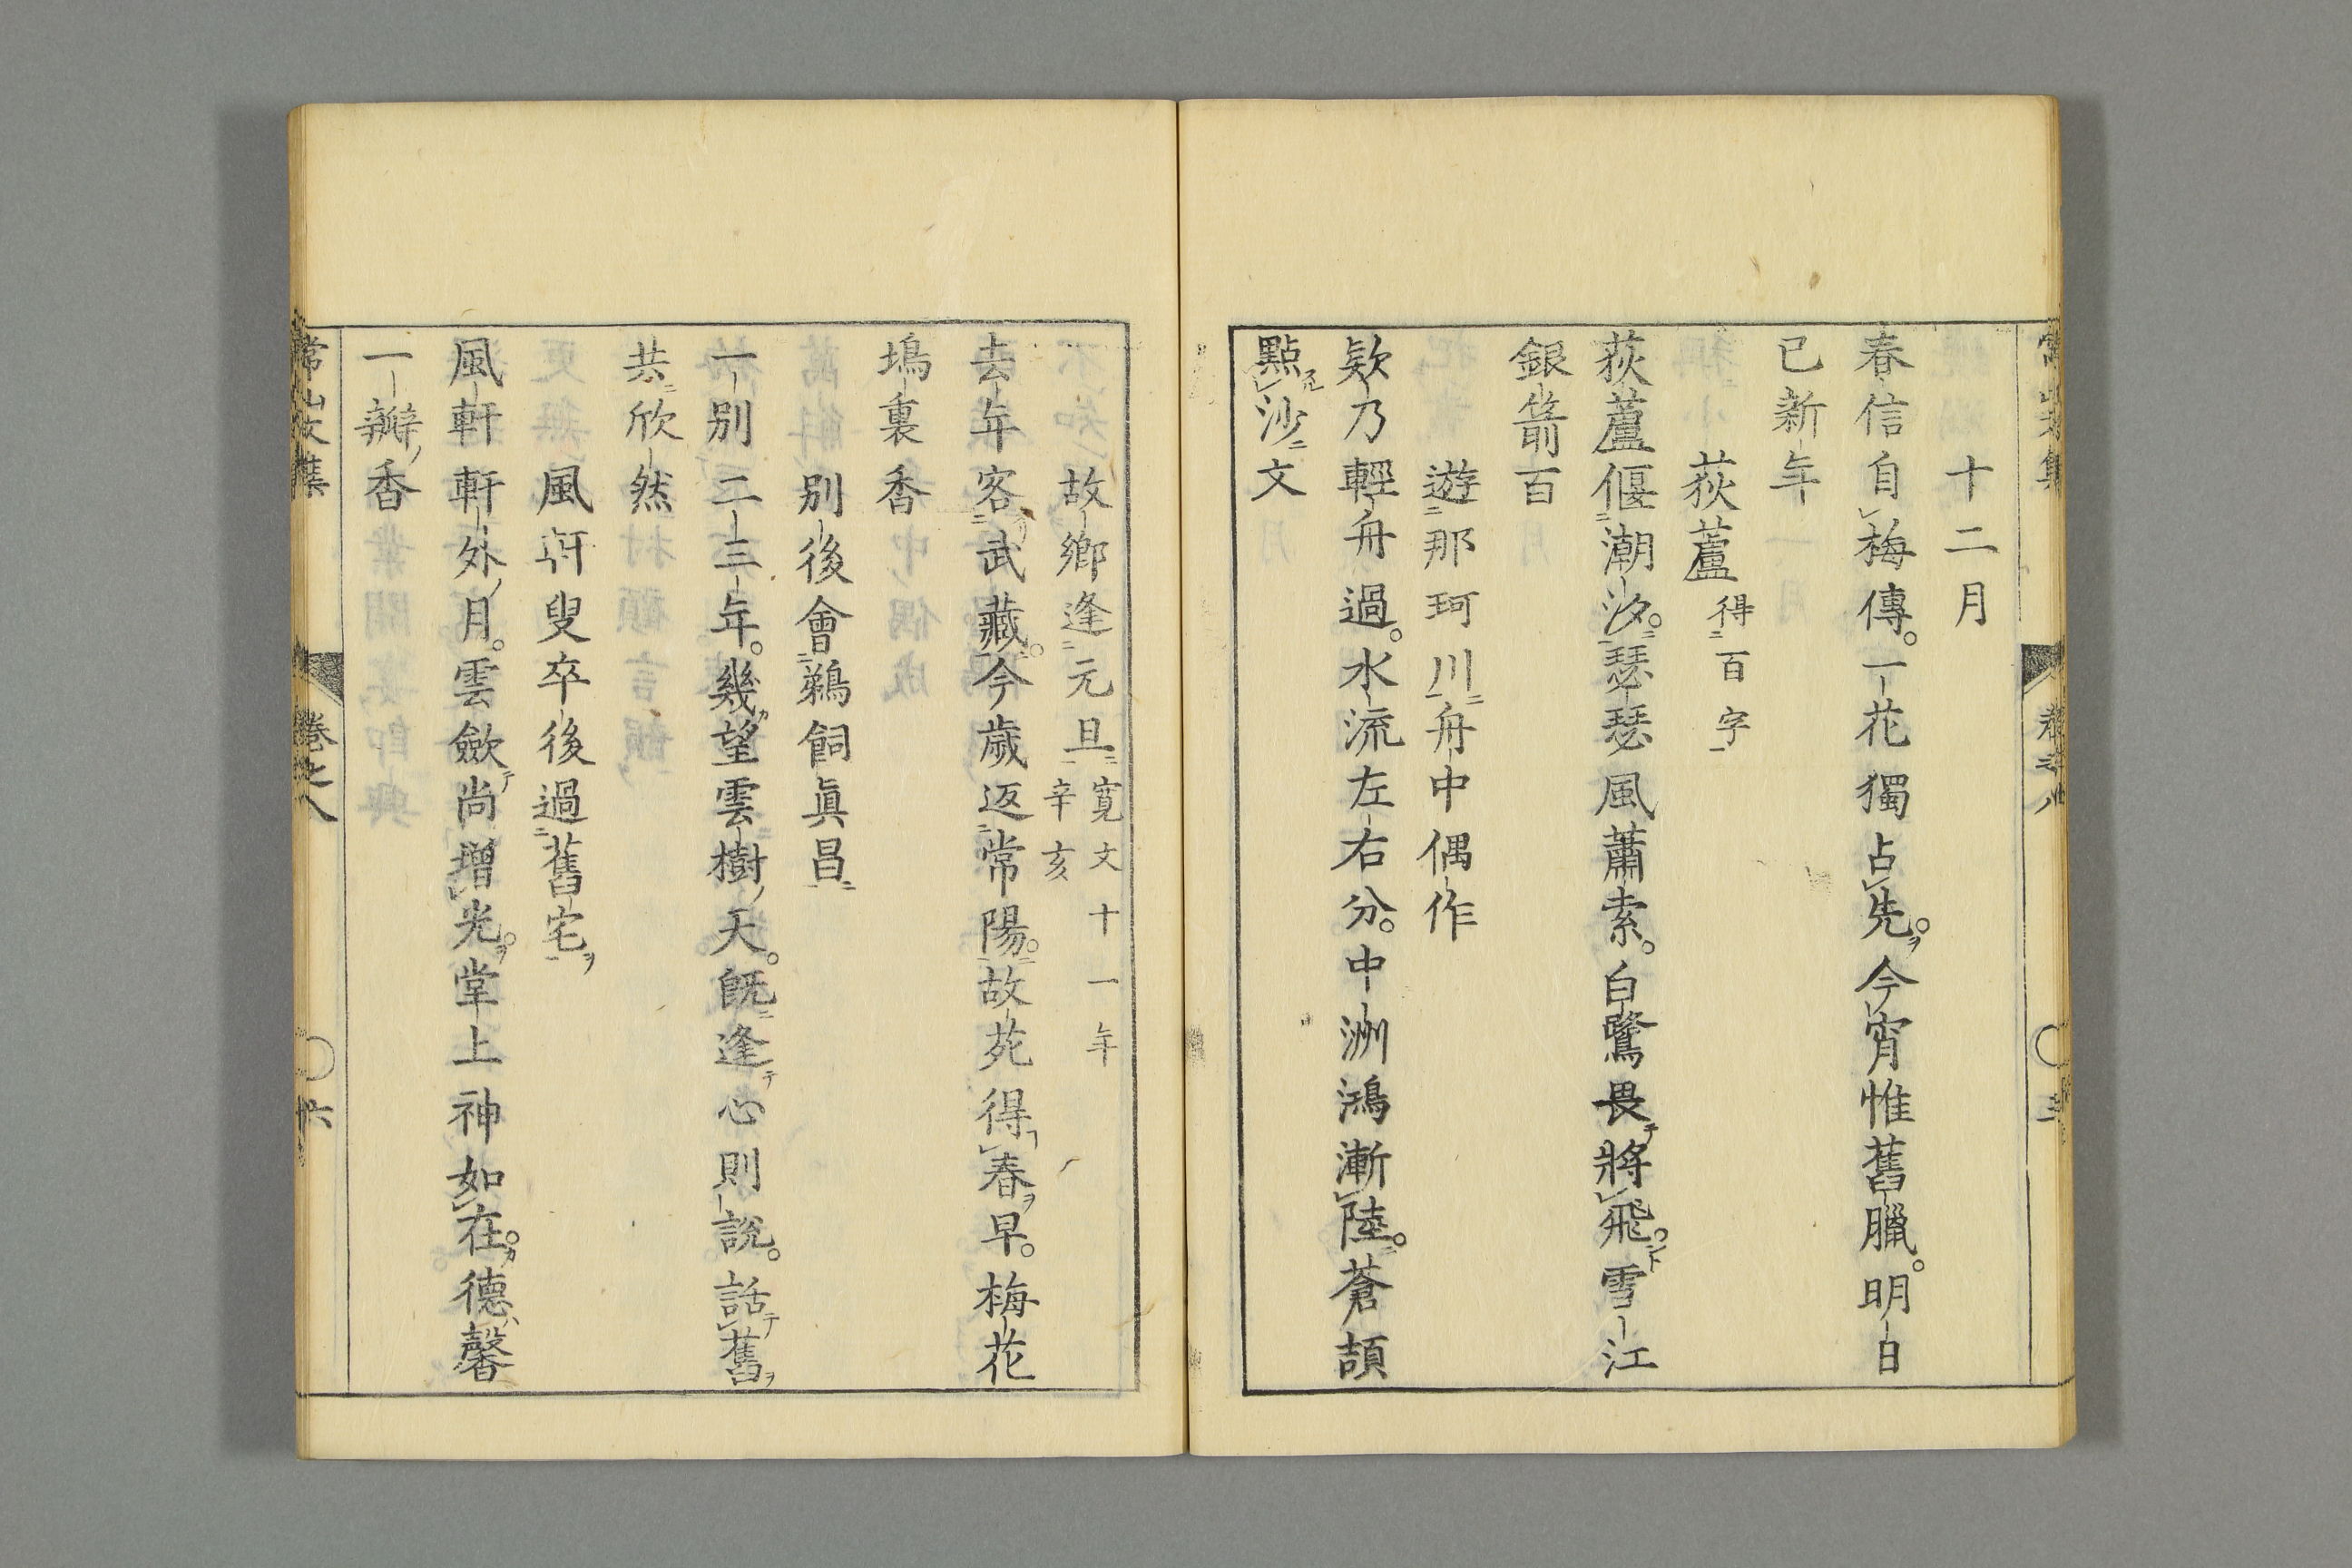 十二月
春信自梅傳。一花獨占先。今宵惟舊臘。明日
已新年
荻蘆得百字
荻蘆偃潮汐。瑟瑟風蕭索。白鷺畏將飛。雪江
銀箭百
遊那珂川舟中偶作
欸乃輕舟過。水流左右分。中洲鴻漸陸。蒼頡
點沙文
故鄉逢元旦寛文十一年
辛亥
去年客武藏。今歲返常陽。故苑得春早。梅花
塢裏香
別後會鵜飼眞昌
一別二三年。幾望雲樹天。既逢心則說。話舊
共欣然
風軒叟卒後過舊宅
風軒軒外月。雲斂尚增光。堂上神如在。德馨
一瓣香
常山文集
卷之八
六